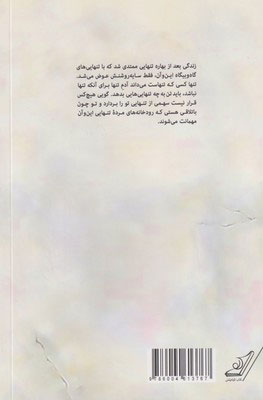 زندگی بعد از بهاره تنهایی ممتدی شد که با تنهایی‌های
گاه‌وبیگاه این‌وآن، فقط سایه‌روشنش عوض می‌شد.
تنها کسی که تنهاست می‌داند آدم تنها برای آنکه تنها
نباشد، باید تن به چه تنهایی‌هایی بدهد. گویی هیچ‌کس
قرار نیست سهمی از تنهایی تو را بردارد و تو چون
باتلاقی هستی که رودخانه‌های مردهٔ تنهایی این‌وآن
مهمانت می‌شوند.